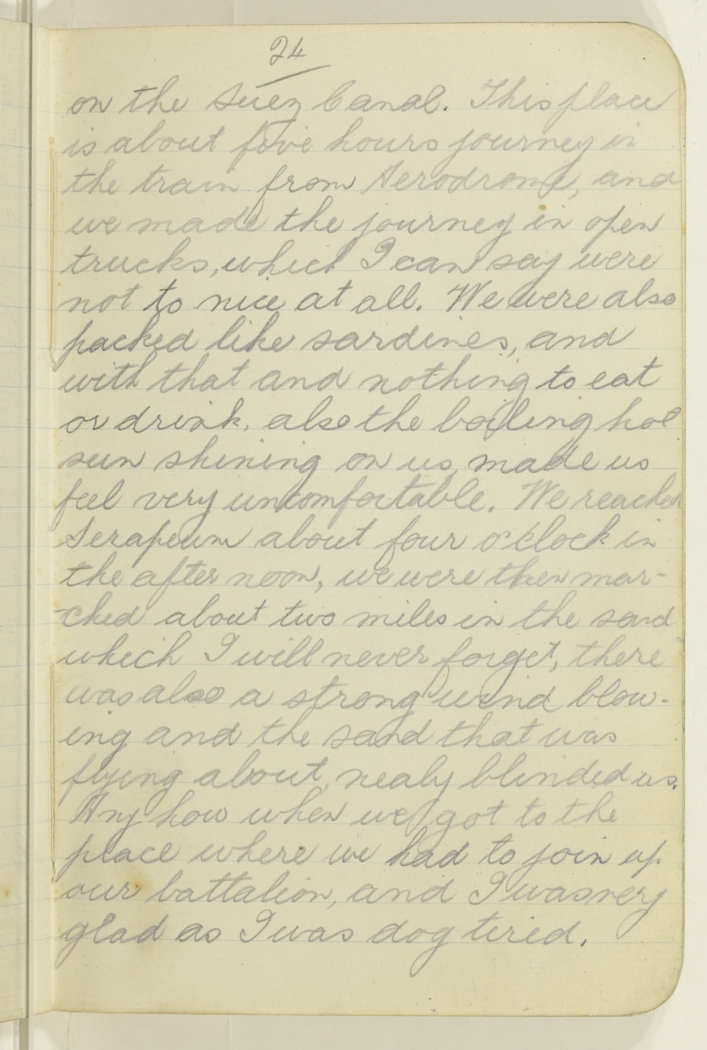 24
on the Suez Canal. This place
is about five hours journey in
the train from Aerodrome, and
we made the journey in open
trucks, which I can say were
not to nice at all. We were also
packed like sardines, and
with that and nothing to eat
or drink, also the boiling hot
sun shining on us, made us
feel very uncomfortable. We reached
Serapeum about four o'clock in
the after noon, we were then mar-
-ched about two miles in the sand
which I will never forget, there
was also a strong wind blow-
ing and the sand that was
flying about, nealy blinded us.
Any how when we got to the
place where we had to join up
our battalion, and I was very
glad as I was dog tired.